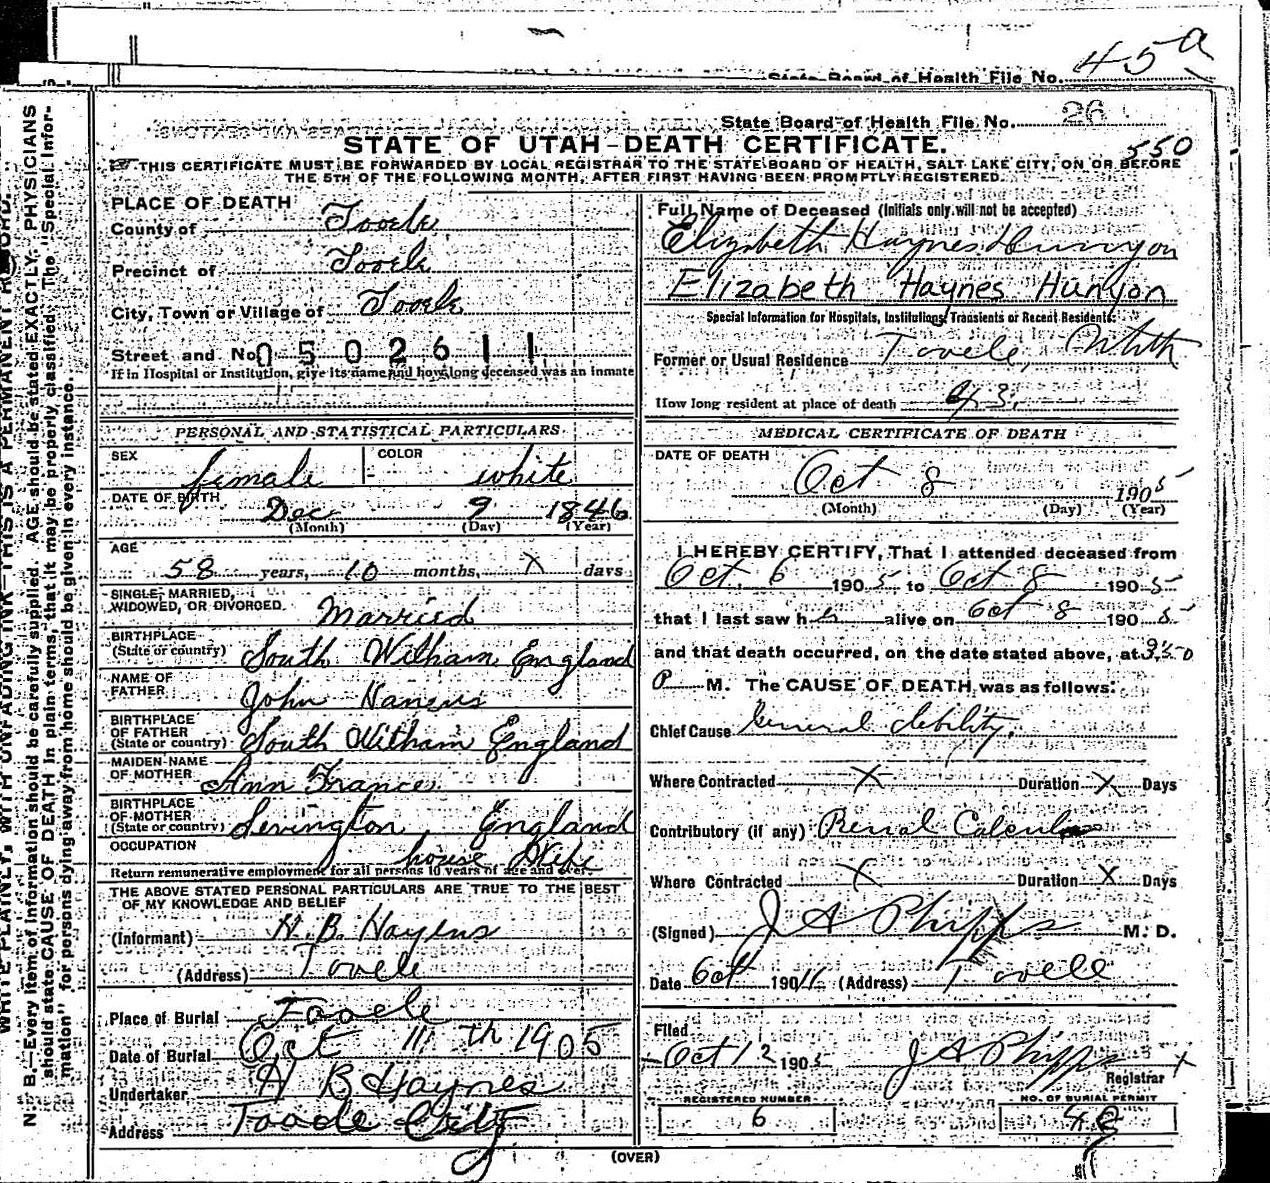 45a
State Board of Health File No.
State Board of Health File No. 26
STATE OF UTAH-DEATH CERTIFICATE.
550
THIS CERTIFICATE MUST BE FORWARDED BY LOCAL REGISTRAR TO THE STATE BOARD OF HEALTH, SALT LAKE CITY, ON OR BEFORE
THE 5TH OF THE FOLLOWING MONTH, AFTER FIRST HAVING BEEN PROMPTLY REGISTERED.
PLACE OF DEATH
County of Tooele
Precinct of Tooele
City, Town or Village of Tooele
Street and No. 0502611
If in Hospital or Institution, give its name and how long deceased was an inmate
PERSONAL AND STATISTICAL PARTICULARS.
SEX female COLOR white
DATE OF BIRTH Dec 9 1846
(Month) (Day) (Year)
AGE
58 years, 10 months, X days
SINGLE, MARRIED,
WIDOWED, OR DIVORCED. Married
BIRTHPLACE
(State or country) South Witham England
NAME OF
FATHER John
BIRTHPLACE
OF FATHER
(State or country) South Witham England
MAIDEN NAME
OF MOTHER Ann France
BIRTHPLACE
OF MOTHER
(State or country) England
OCCUPATION house Wife
Return remunerative employment for all persons 10 years of age and over.
THE ABOVE STATED PERSONAL PARTICULARS ARE TRUE TO THE BEST
OF MY KNOWLEDGE AND BELIEF
(Informant) H. B. Hayens
(Address) Tooele
Place of Burial Tooele
Date of Burial Oct 11th 1905
Undertaker H B Haynes
Address Tooele City
Full Name of Deceased (Initials only will not be accepted)
Elizabeth Haynes Hunyon
Elizabeth Haynes Hunyon
Special Information for Hospitals, Institutions, Transients or Recent Residents:
Former or Usual Residence Tooele, Utah
How long resident at place of death 43.
MEDICAL CERTIFICATE OF DEATH
DATE OF DEATH
Oct 8 1905
(Month) (Day) (Year)
I HEREBY CERTIFY, That I attended deceased from
Oct. 6 1905 to Oct 8 1905
that I last saw her alive on Oct 8 1905
and that death occurred, on the date stated above, at 9:50
P M. The CAUSE OF DEATH was as follows:
Chief Cause General debility.
Where Contracted X Duration X Days
Contributory (if any) Renal Calculus
Where Contracted X Duration X Days
(Signed) J A Phipps M. D.
Date Oct 1911 (Address) Tooele
Filed
Oct 12 1905 J A Phipps
Registrar
REGISTERED NUMBER
6
NO. OF BURIAL PERMIT
48
(OVER)
WRITE PLAINLY, WITH UNFADING INK-THIS IS A PERMANENT RECORD.
N. B.—Every item of Information should be carefully supplied. AGE should be stated EXACTLY. PHYSICIANS
should state CAUSE OF DEATH in plain terms, that it may be properly classified. The "Special Infor-
mation" for persons dying away from home should be given in every instance.